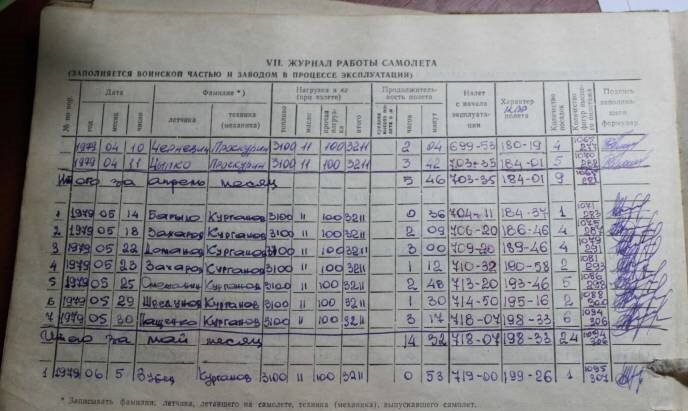 VII. ЖУРНАЛ РАБОТЫ САМОЛЕТА
(ЗАПОЛНЯЕТСЯ ВОИНСКОЙ ЧАСТЬЮ И ЗАВОДОМ В ПРОЦЕССЕ ЭКСПЛУАТАЦИИ)
№ по пор. Дата год месяц число Фамилия* летчика техника (механика) Нагрузка в кг (при взлете) топливо масло прочая нагрузка итого Продолжительность полета часов минут Налет с начала эксплуатации Характер полета Количество посадок Количество Подпись заполнившего формуляр
1979 04 10 Проскурин 3100 11 100 3211 2 04 699-53 180-19 4
1979 04 11 Цыпко Проскурин 3100 11 100 3211 3 42 703-35 184-01 5
Итого за апрель месяц 5 46 703-35 184-01 9
1 1979 05 14 Курганов 3100 11 100 3211 0 36 704-11 184-37 1 1071 283
2 1979 05 18 Захаров Курганов 3100 11 100 3211 2 09 706-20 186-46 4 1075 287
3 1979 05 22 Курганов 3100 11 100 3211 3 00 709-20 189-46 4 1079 291
4 1979 05 23 Захаров Курганов 3100 11 100 3211 1 12 710-32 190-58 2 1081 293
5 1979 05 25 Курганов 3100 11 100 3211 2 48 713-20 193-46 5 1086 298
6 1979 05 29 Курганов 3100 11 100 3211 1 30 714-50 195-16 2 1088 300
7 1979 05 30 Пащенко Курганов 3100 11 100 3211 3 17 718-07 198-33 6 1094 306
Итого за май месяц 14 32 718-07 198-33 24 1094
1 1979 06 5 Зубец Курганов 3100 11 100 3211 0 53 719-00 199-26 1 1095 307
* Записывать фамилии: летчика, летавшего на самолете, техника (механика), выпускавшего самолет.